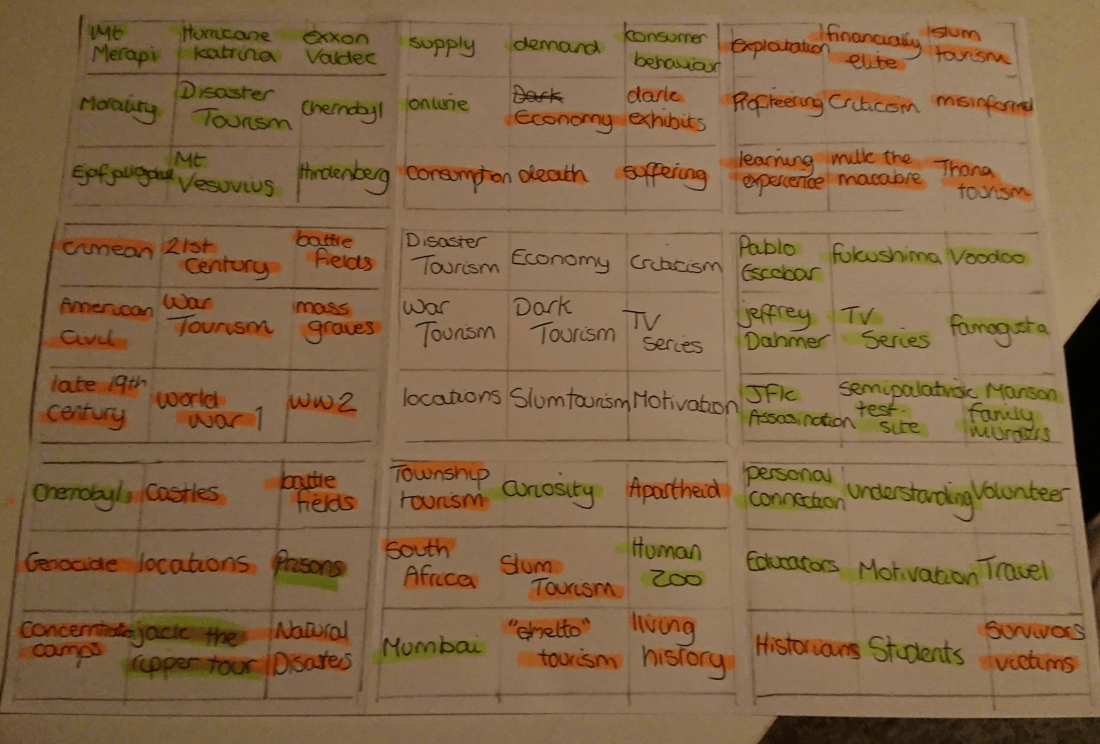 Mt Hurricane exxon supply demand consumer Exploitation financially slum
Merapi Katrina Valdec behaviour elite tourism
Morality Disaster Chernobyl online Dark dark Profiteering Criticism misinformed
Tourism Economy exhibits
Mt Hindenberg consumption death suffering learning milk the Thana
Vesuvius experience macabre tourism
Crimean 21st battle Disaster Economy Criticism Pablo fukushima Voodoo
Century fields Tourism Escobar
American War mass War Dark TV jeffrey TV famagusta
Civil Tourism graves Tourism Tourism Series Dahmer Series
late 19th World WW2 locations Slumtourism Motivation JFK semipalatinsk Manson
century War 1 Assasination test- family
site murders
Chernobyl Castles battle Township Curiosity Apartheid personal understanding Volunteer
fields tourism connection
Genocide locations Prisons South Slum Human Educators Motivation Travel
Africa Tourism Zoo
jack the Natural Mumbai "Ghetto" living Historians Students Survivors
camps ripper tour Disaters tourism history victims